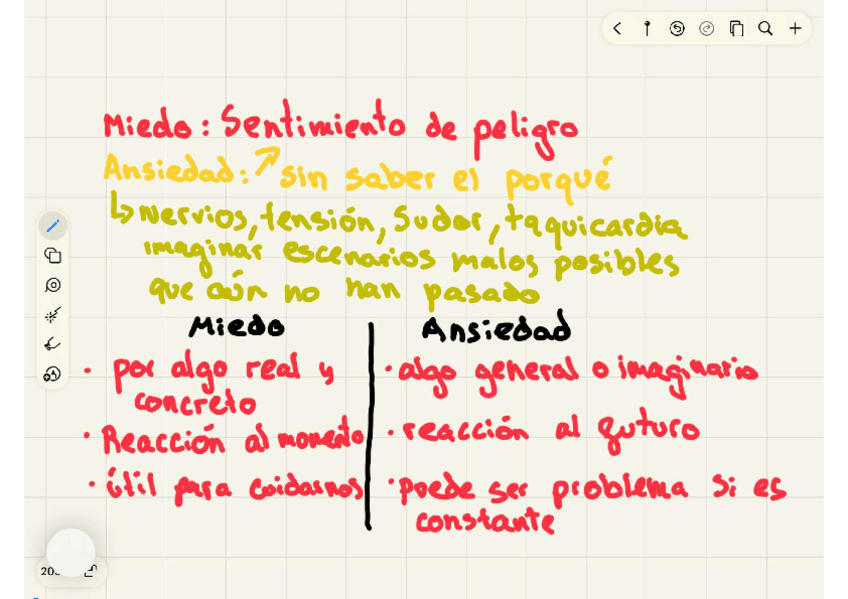 Miedo: Sentimiento de peligro
Ansiedad: ↗ sin saber el porqué
↳ nervios, tensión, sudor, taquicardia
imaginar escenarios malos posibles
que aún no han pasado
Miedo
· por algo real y
concreto
· Reacción al momento
· útil para cuidarnos
Ansiedad
· algo general o imaginario
· reacción al futuro
· puede ser problema si es
constante